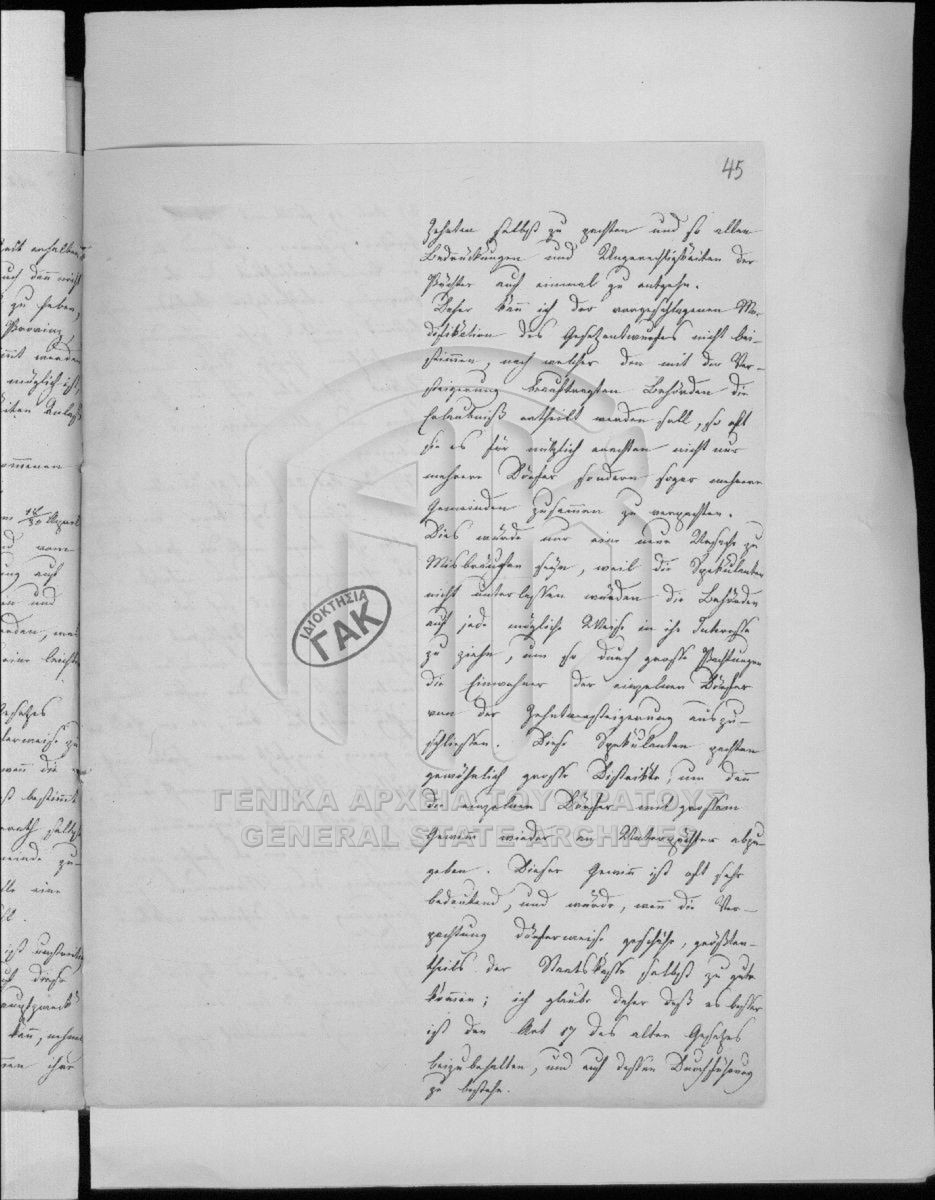 45
Zehnten selbst zu pachten und so allen
Bedrückungen und Ungerechtigkeiten der
Pächter auf einmal zu entgehn.
Daher kann ich der vorgeschlagenen Mo-
difikation des Gesetzentwurfes nicht bei-
stimmen, nach welcher den mit der Ver-
steigerung beauftragten Behörden die
Erlaubniß ertheilt werden soll, so oft
sie es für nützlich erachten nicht nur
mehrere Dörfer sondern sogar mehrere
Gemeinden zusammen zu verpachten.
Dies würde nur eine neue Ursache zu
Misbräuchen seyn, weil die Spekulanten
nicht unterlassen würden die Behörden
auf jede mögliche Weise in ihr Interesse
zu ziehn, um so durch grosse Pachtungen
die Einwohner der einzelnen Dörfer
von der Zehntversteigerung auszu-
schliessen. Diese Spekulanten pachten
gewöhnlich grosse Distrikte, um dann
die einzelnen Dörfer mit grossem
Gewinn wieder an Unterpächter abzu
geben. Dieser Gewinn ist oft sehr
bedeutend, und würde, wenn die Ver-
pachtung dörferweise geschähe, größten-
theils der Staatskasse selbst zu gute
kommen; ich glaube daher daß es besser
ist den Art 17 des alten Gesetzes
beizubehalten, und auf dessen Durchführung
zu bestehn.
ΙΔΙΟΚΤΗΣΙΑ
ΓΑΚ
ΓΕΝΙΚΑ ΑΡΧΕΙΑ ΤΟΥ ΚΡΑΤΟΥΣ
GENERAL STATE ARCHIVES